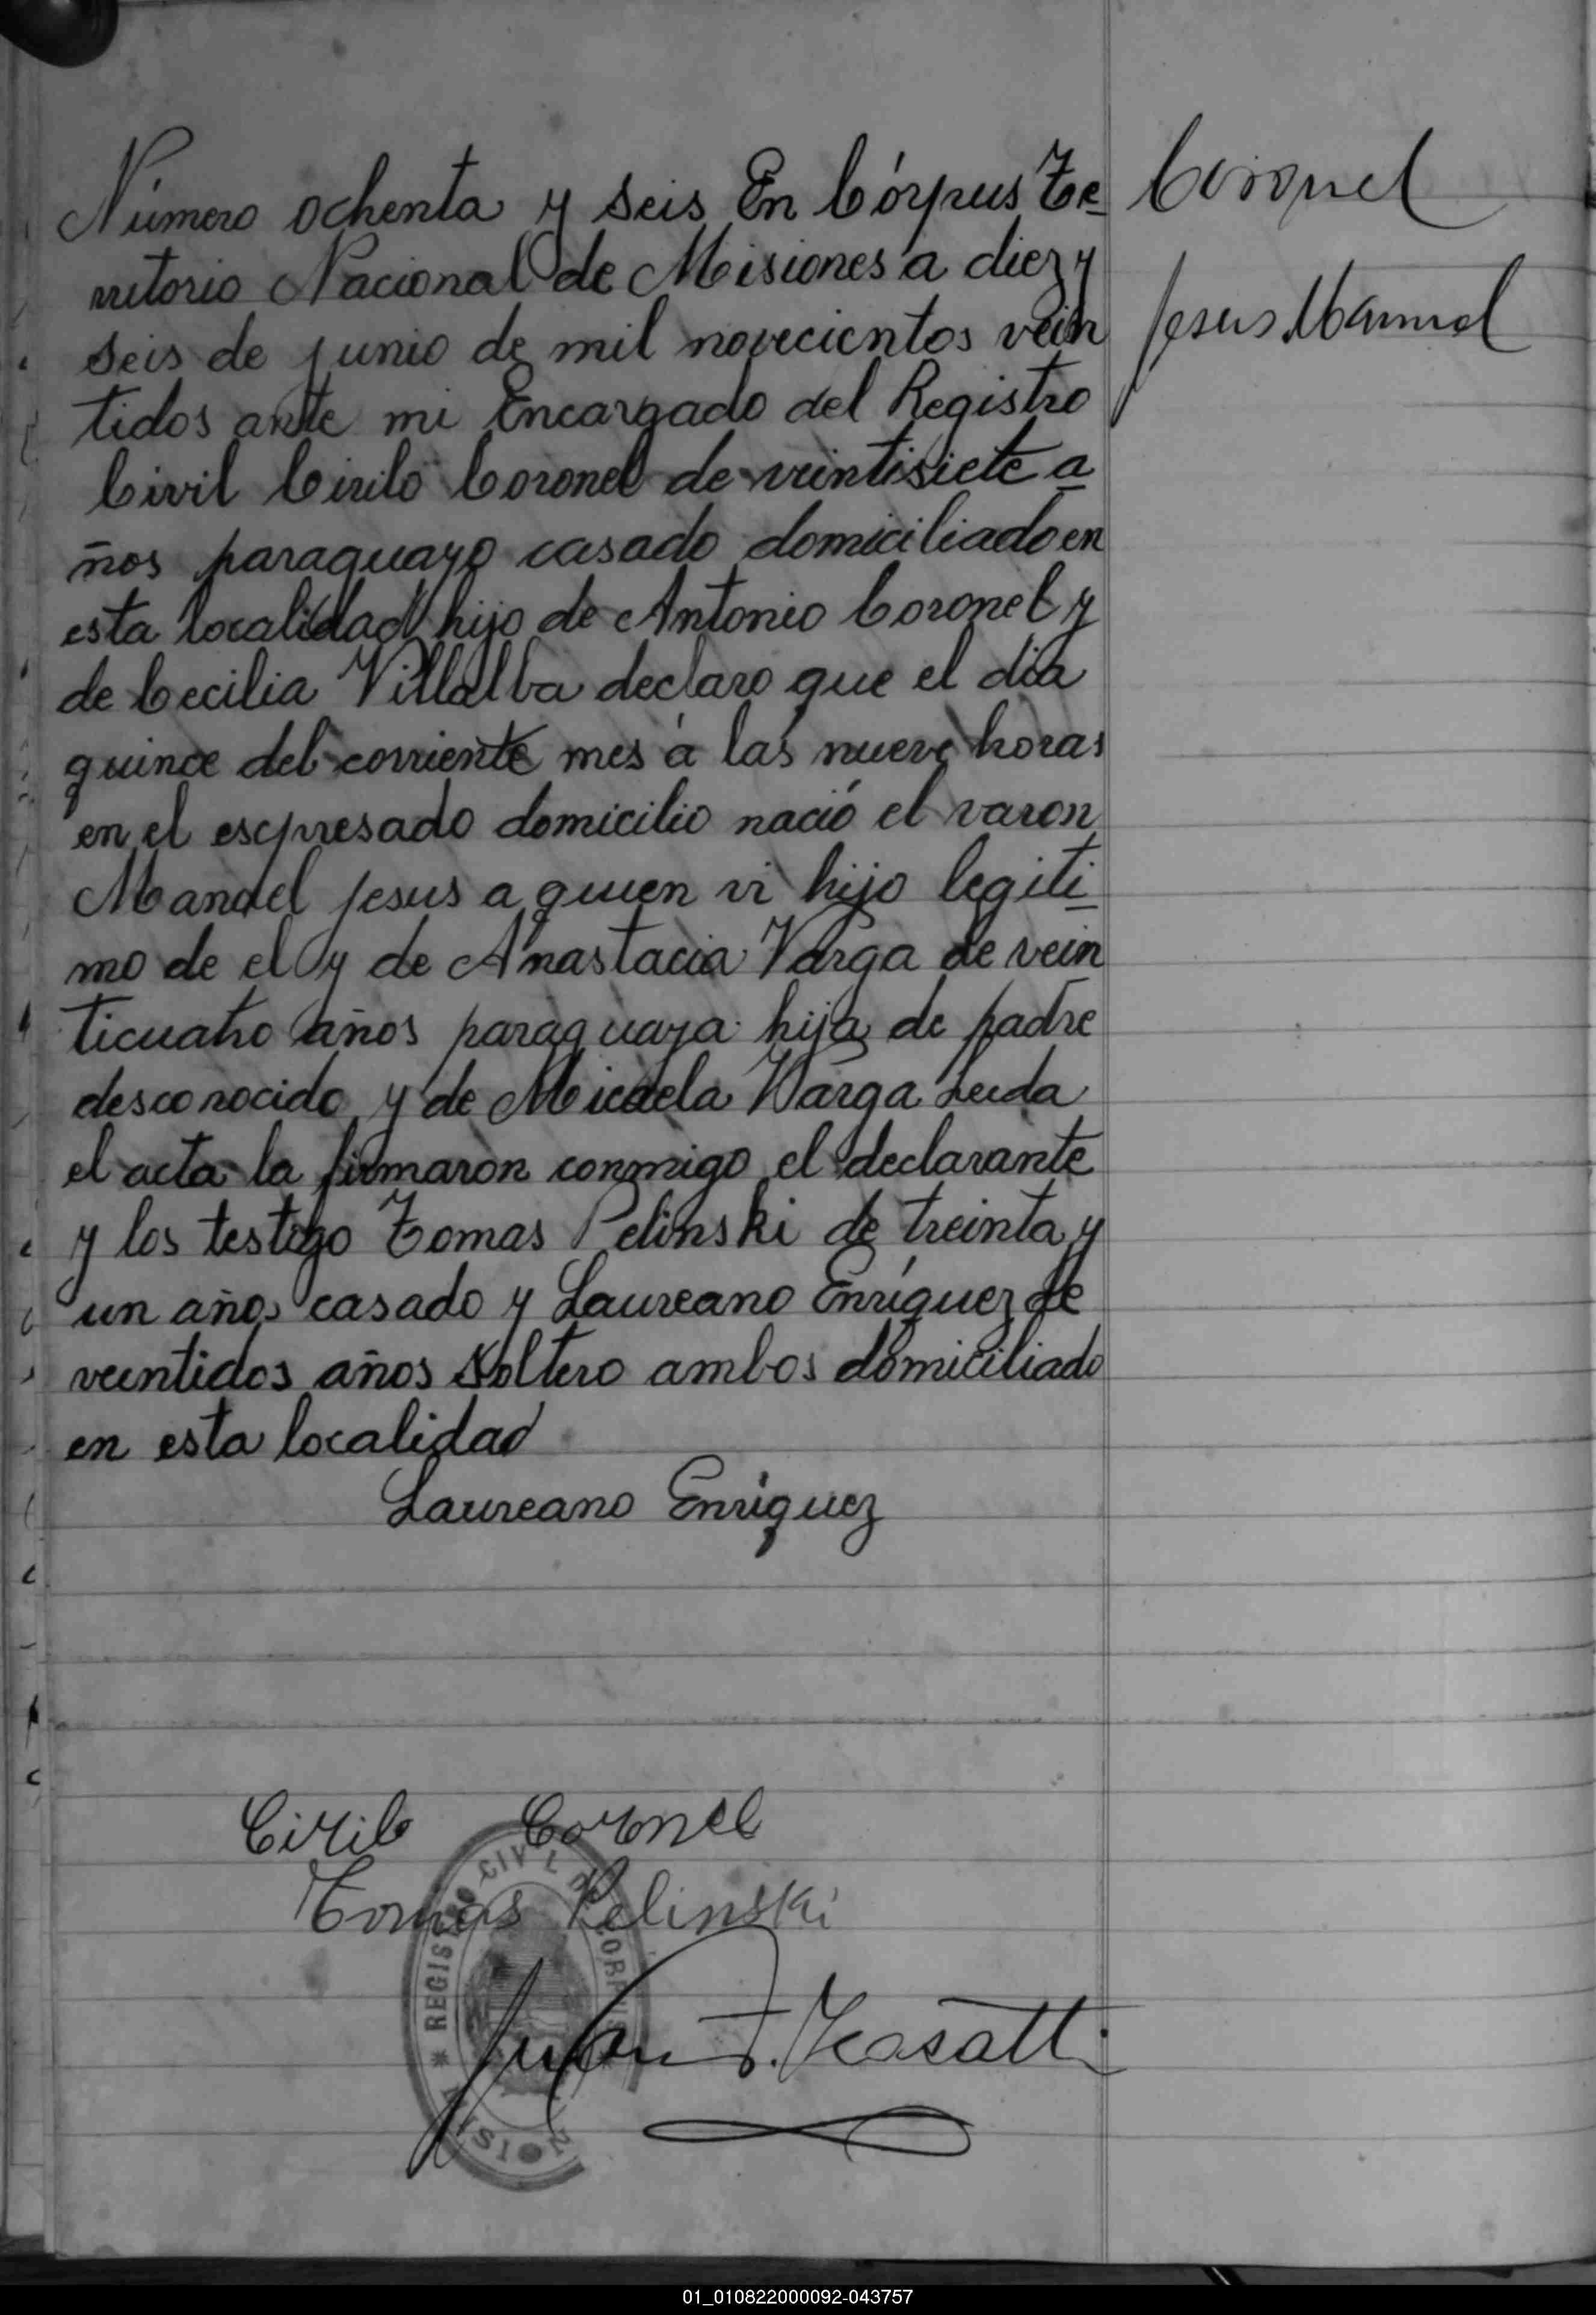 Número ochenta y seis En Córpus Te-
rritorio Nacional de Misiones a diez y
seis de junio de mil novecientos vein
tidos ante mi Encargado del Registro
Civil Cirilo Coronel de veintisiete a
ños paraguayo casado domiciliado en
esta localidad hijo de Antonio Coronel y
de Cecilia Villalba declaro que el dia
quince del corriente mes á las nueve horas
en el escpresado domicilio nació el varon
Manuel Jesus a quien vi hijo legiti-
mo de el y de Anastacia Varga de vein
ticuatro años paraguaya hija de padre
desconocido y de Micaela Varga Leida
el acta la firmaron conmigo el declarante
y los testigo Tomas Pelinski de treinta y
un años casado y Laureano Enríquez de
veintidos años soltero ambos domiciliado
en esta localidad
Laureano Enríquez
Cirilo Coronel
Tomas Pelinski
Juan
REGISTRO CIVIL DE CORPUS
MISIONES
Coronel
Jesus Manuel
01_010822000092-043757